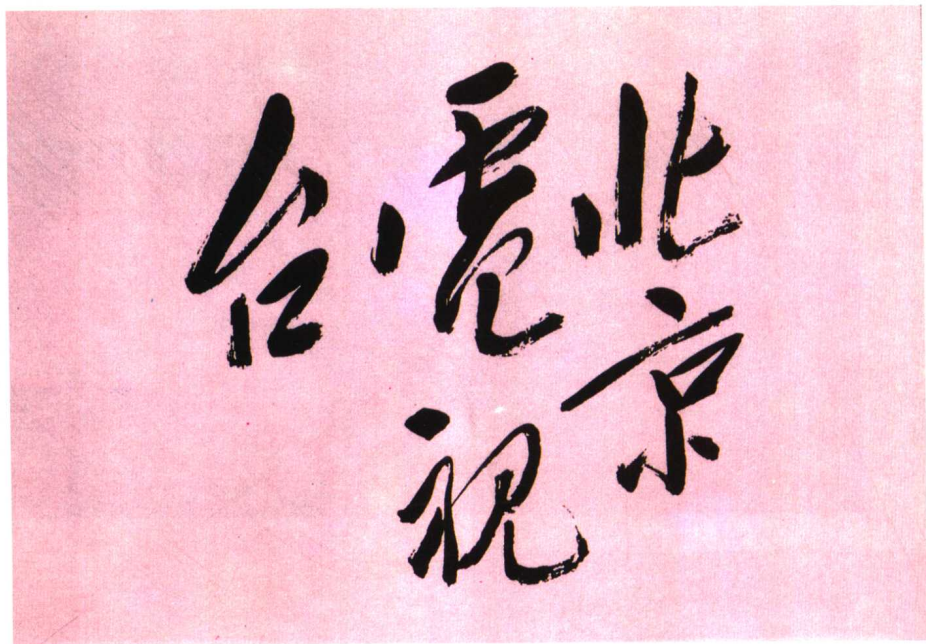 北京
電视
台